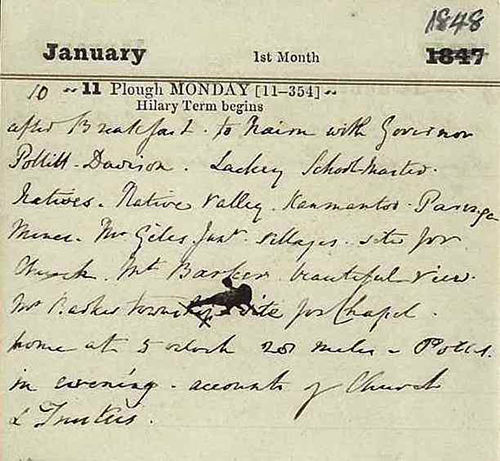 1848
January 1st Month 1847
10 11 Plough MONDAY [11-354]
Hilary Term begins
after Breakfast. to Nairn with Governor
Pollitt. Davison. Lackey School-Master.
Natives. Native Valley. Kanmantoo. Paringa
Mines. Mr Giles Junr. Villages. site for
Church. Mt Barker beautiful view.
Mt Barker Township site for Chapel.
home at 5 o'clock 28 miles - Politt.
in evening. accounts of Church
& Trustees.